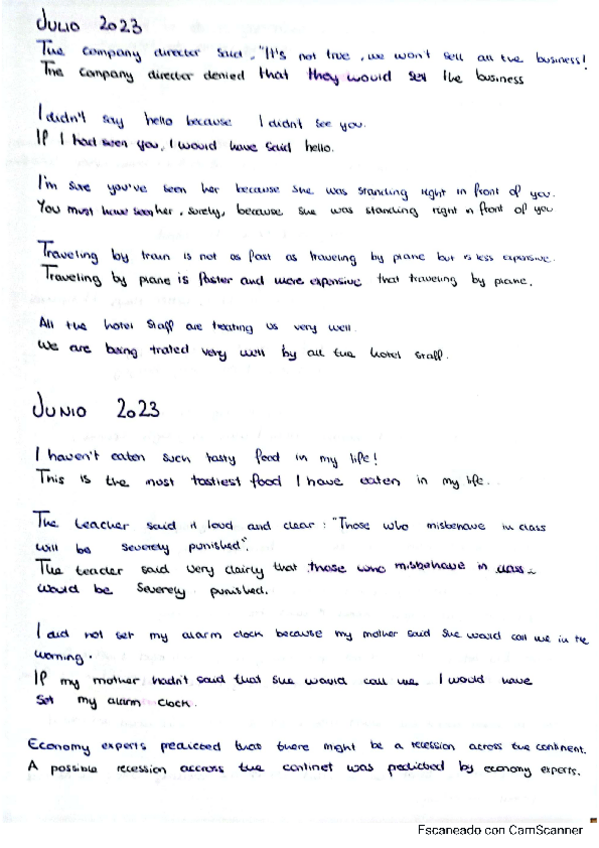 JULIO 2023
The company director said, "It's not true, we won't sell all the business!
The company director denied that they would sell the business
I didn't say hello because I didn't see you.
If I had seen you, I would have said hello.
I'm sure you've seen her because she was standing right in front of you.
You must have seen her, surely, because she was standing right in front of you
Traveling by train is not as fast as traveling by plane but is less expensive.
Traveling by plane is faster and more expensive that traveling by plane.
All the hotel staff are treating us very well.
We are being trated very well by all the hotel staff.
JUNIO 2023
I haven't eaten such tasty food in my life!
This is the most tastiest food I have eaten in my life.
The teacher said it loud and clear: "Those who misbehave in class
will be severely punished".
The teacher said very clairly that those who misbehave in class
would be severely punished.
I did not set my alarm clock because my mother said she would call me in the
morning.
If my mother hadn't said that she would call me I would have
set my alarm clock.
Economy experts predicted that there might be a recession across the continent.
A possible recession accross the continet was predicted by economy experts.
Escaneado con CamScanner